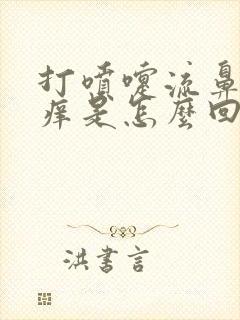 打噴嚏流鼻
痒是怎麼回
洪書言